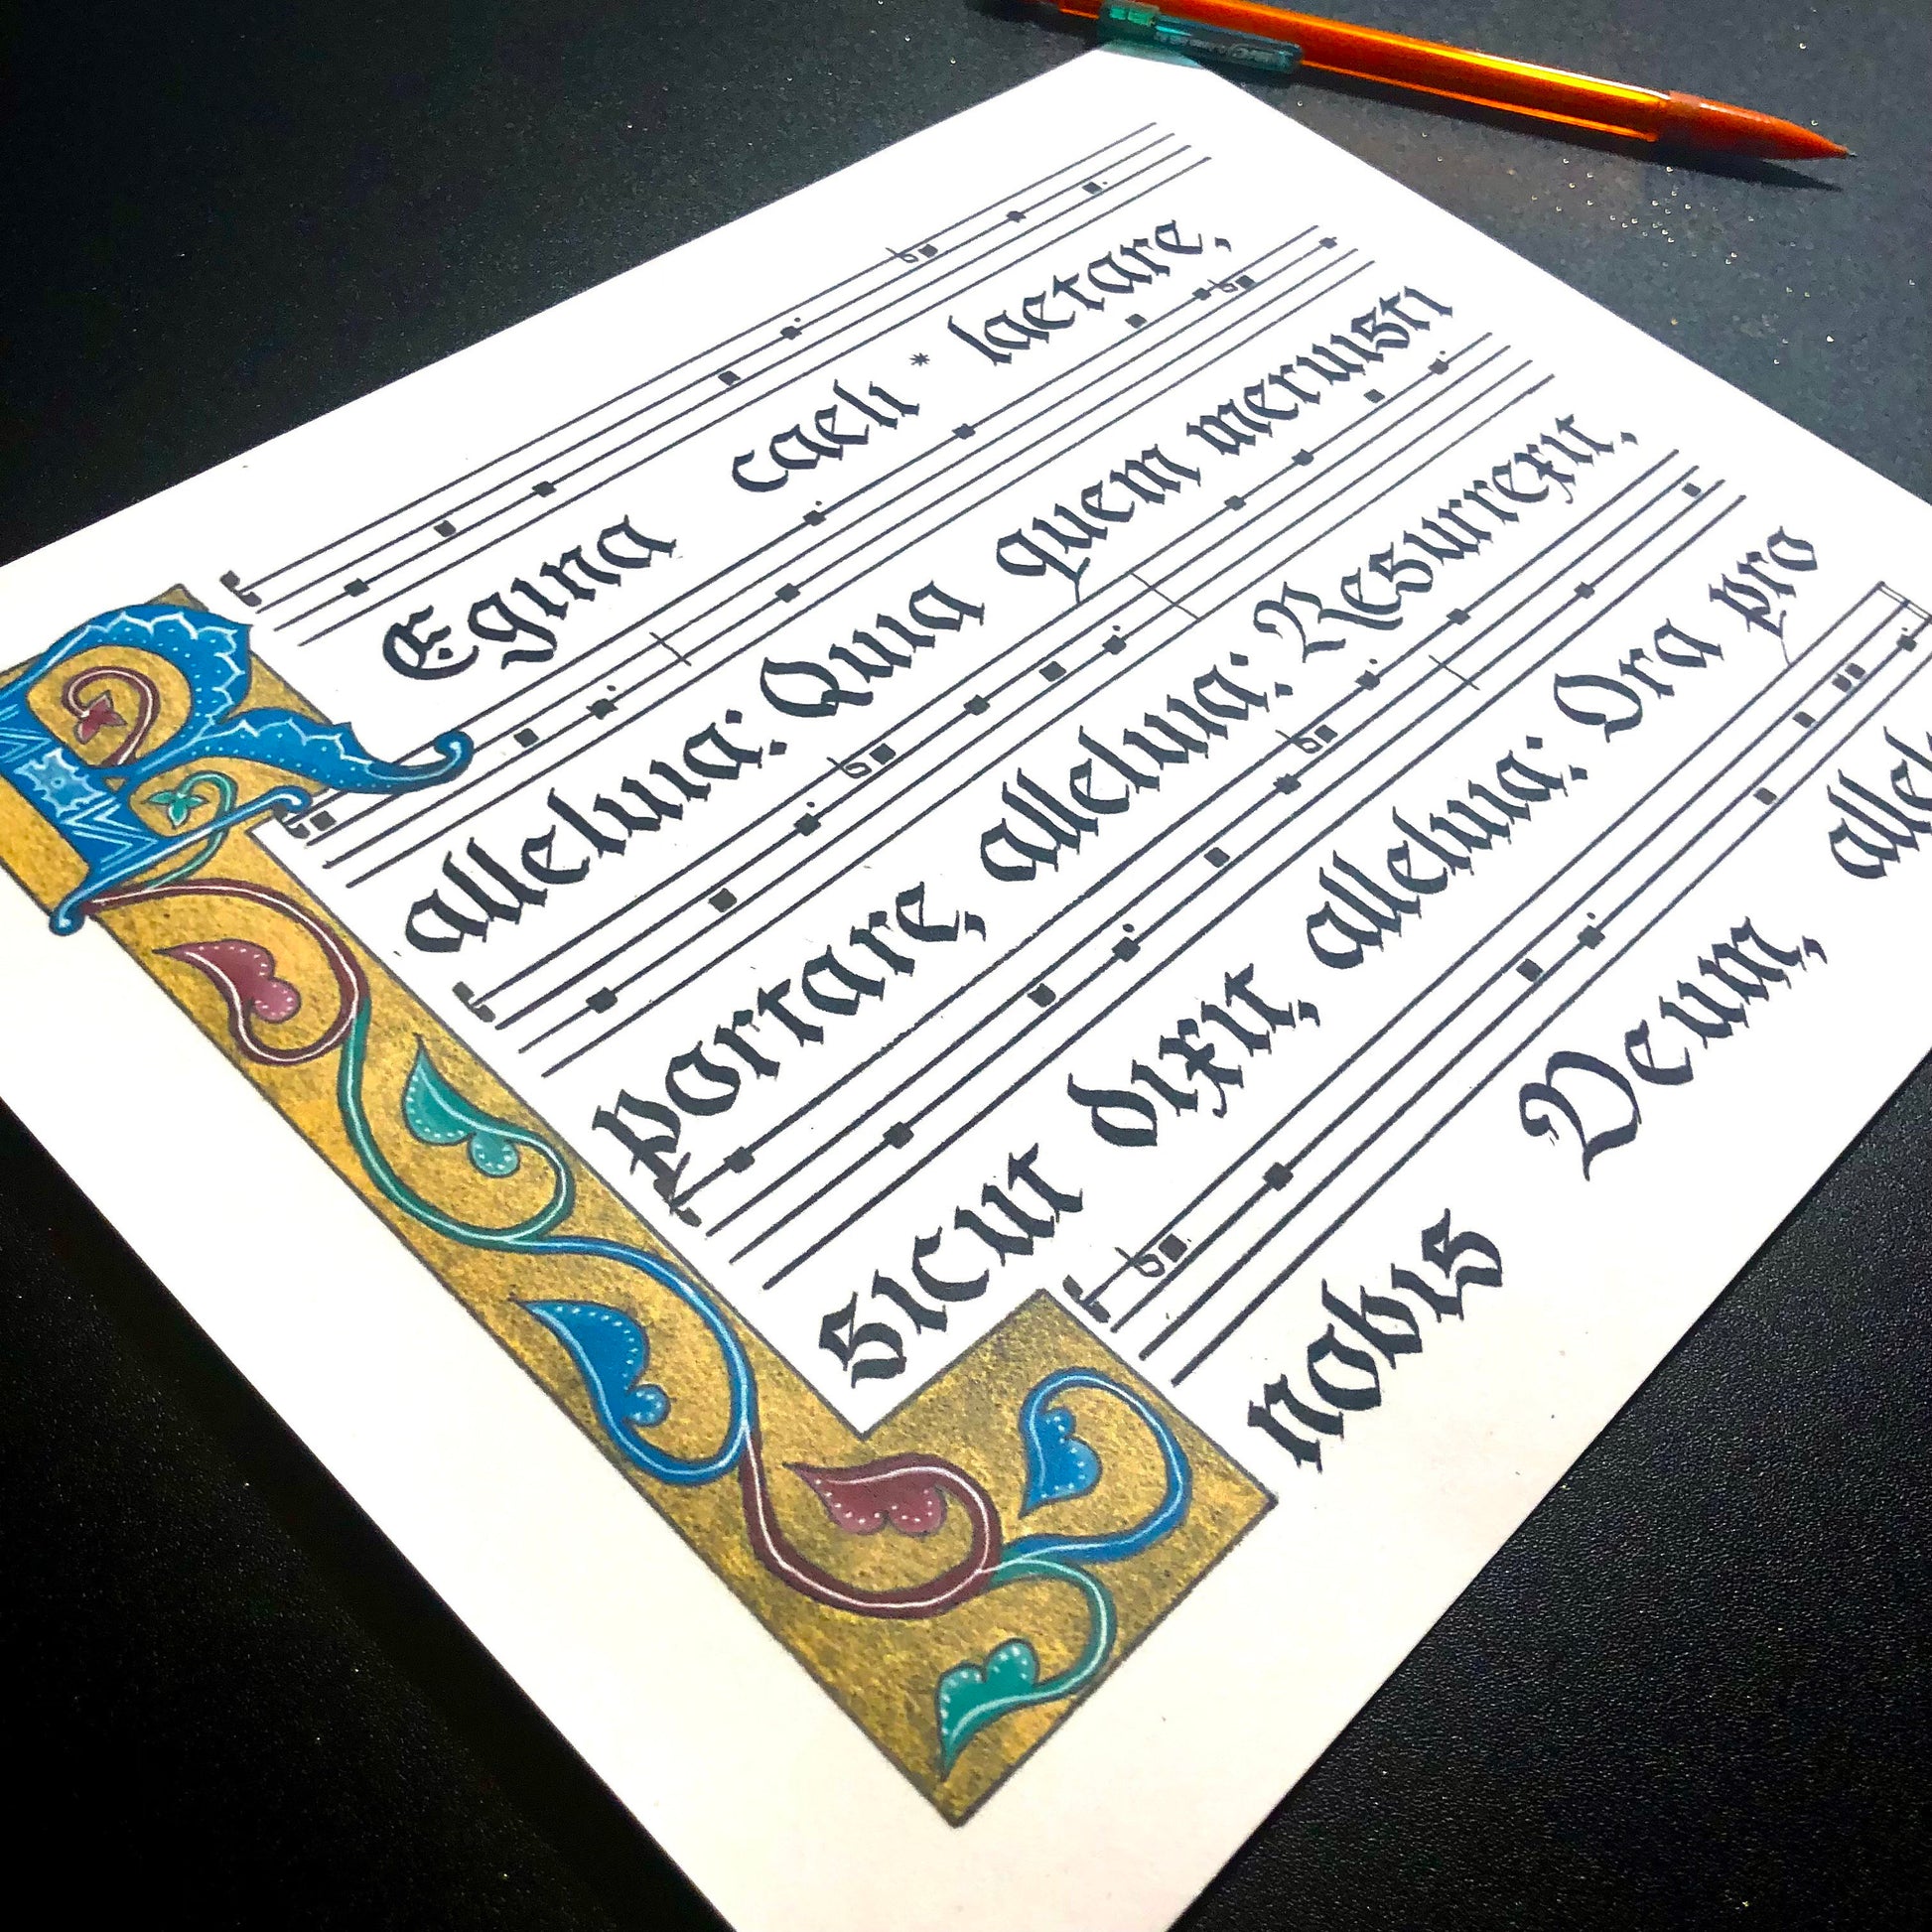 REgina caeli * laetare,
alleluia: Quia quem meruisti
portare, alleluia: Resurrexit,
sicut dixit, alleluia: Ora pro
nobis Deum,